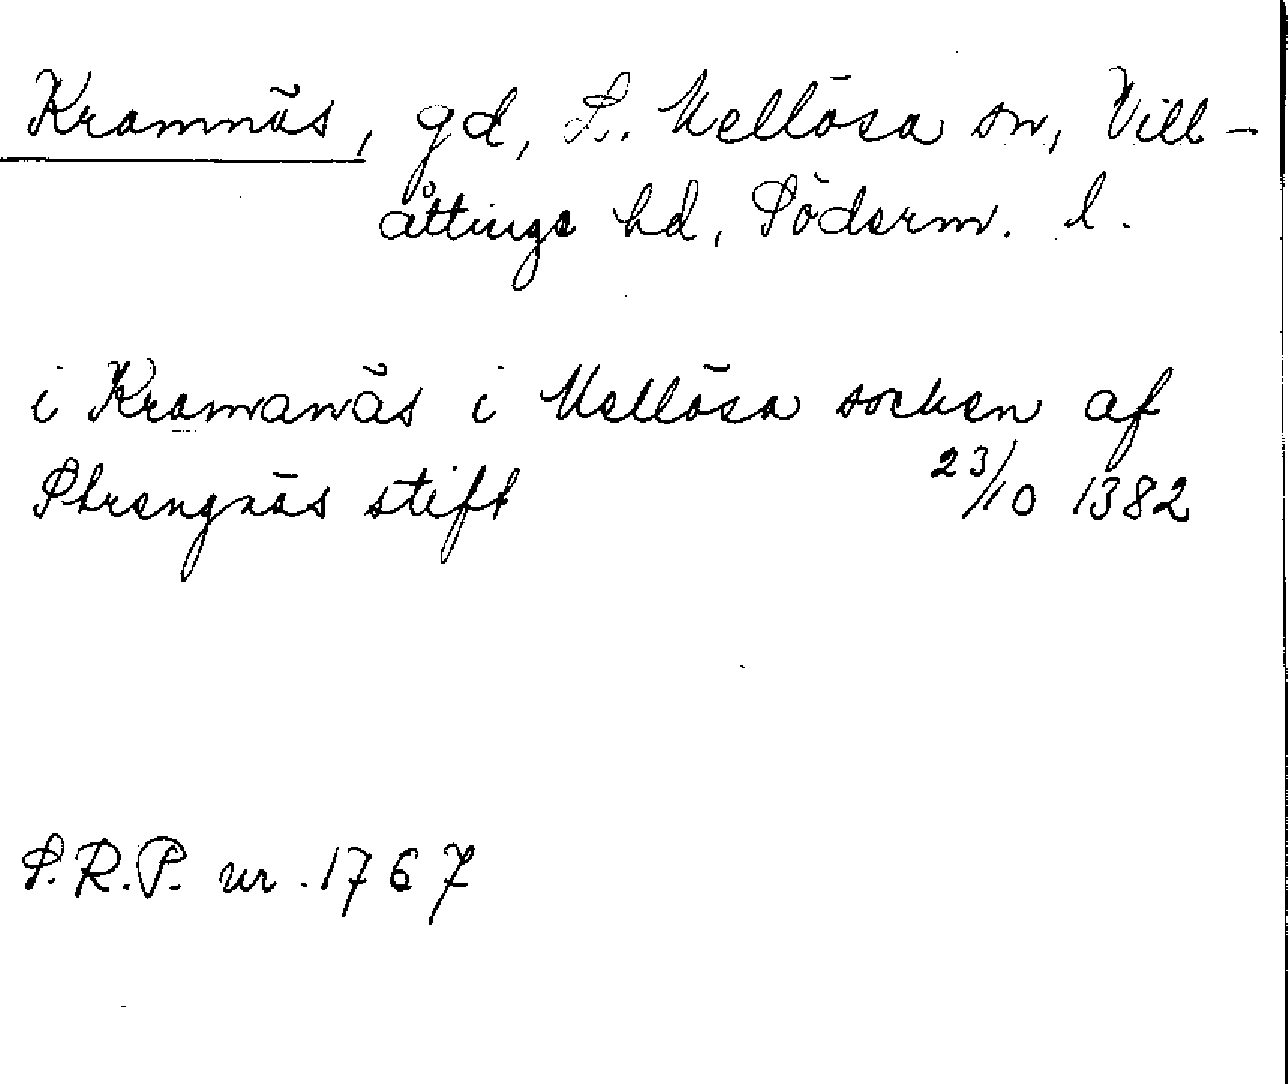 Kramnäs, gd, L. Mellösa sn, Vill-
åttinge hd, Söderm. l.
i Kramanäs i Mellösa socken af
Strengnäs stift 23/10 1382
S.R.P. nr. 1767